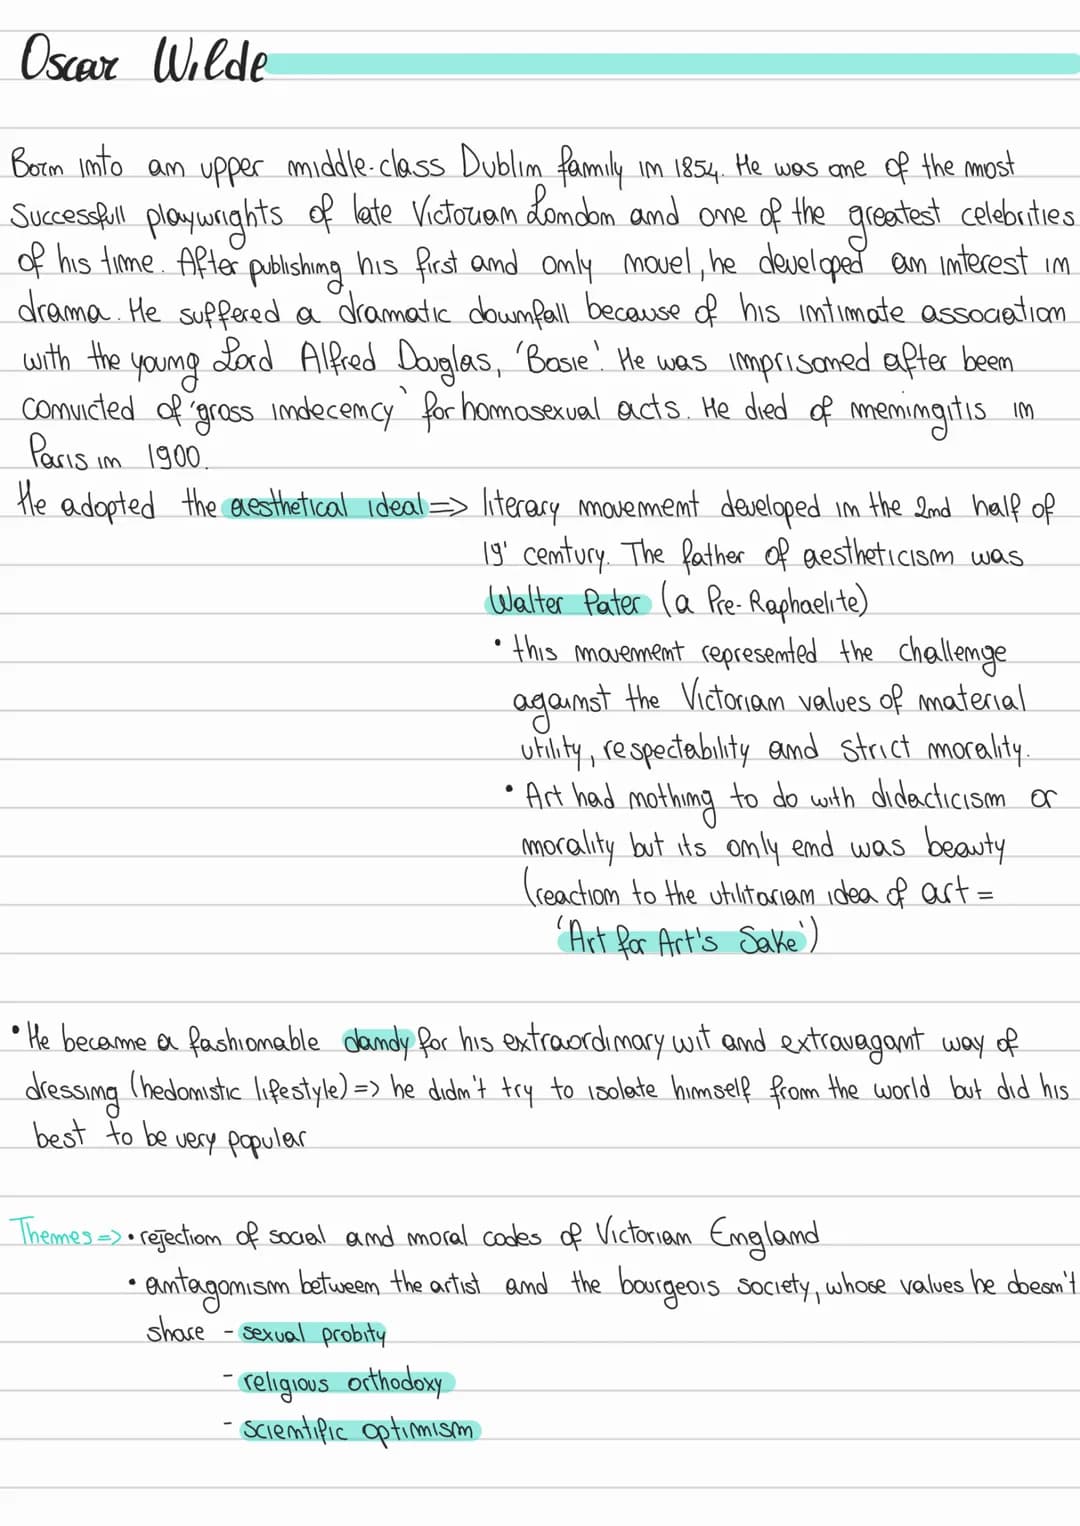 Oscar Wilde
Born into an upper middle-class Dublin family in 1854. He was one of the most
Successfull playwrights of late Victorian London and one of the greatest celebrities
of his time. After publishing his first and only novel, he developed an interest in
drama. He suffered a dramatic downfall because of his intimate association
with the young Lord Alfred Douglas, 'Bosie'. He was imprisoned after been
convicted of 'gross indecency' for homosexual acts. He died of meningitis in
Paris in 1900.
He adopted the aesthetical ideal => literary movement developed in the 2nd half of
19' century. The father of aestheticism was
Walter Pater (a Pre-Raphaelite)
• this movement represented the challenge
against the Victorian values of material
utility, respectability and strict morality.
• Art had nothing to do with didacticism or
morality but its only end was beauty
(reaction to the utilitarian idea of art =
'Art for Art's Sake')
• He became a fashionable dandy for his extraordinary wit and extravagant way of
dressing (hedonistic lifestyle) => he didn't try to isolate himself from the world but did his
best to be very popular
Themes => • rejection of social and moral codes of Victorian England
• antagonism between the artist and the bourgeois society, whose values he doesn't
share - sexual probity
- religious orthodoxy
- scientific optimism